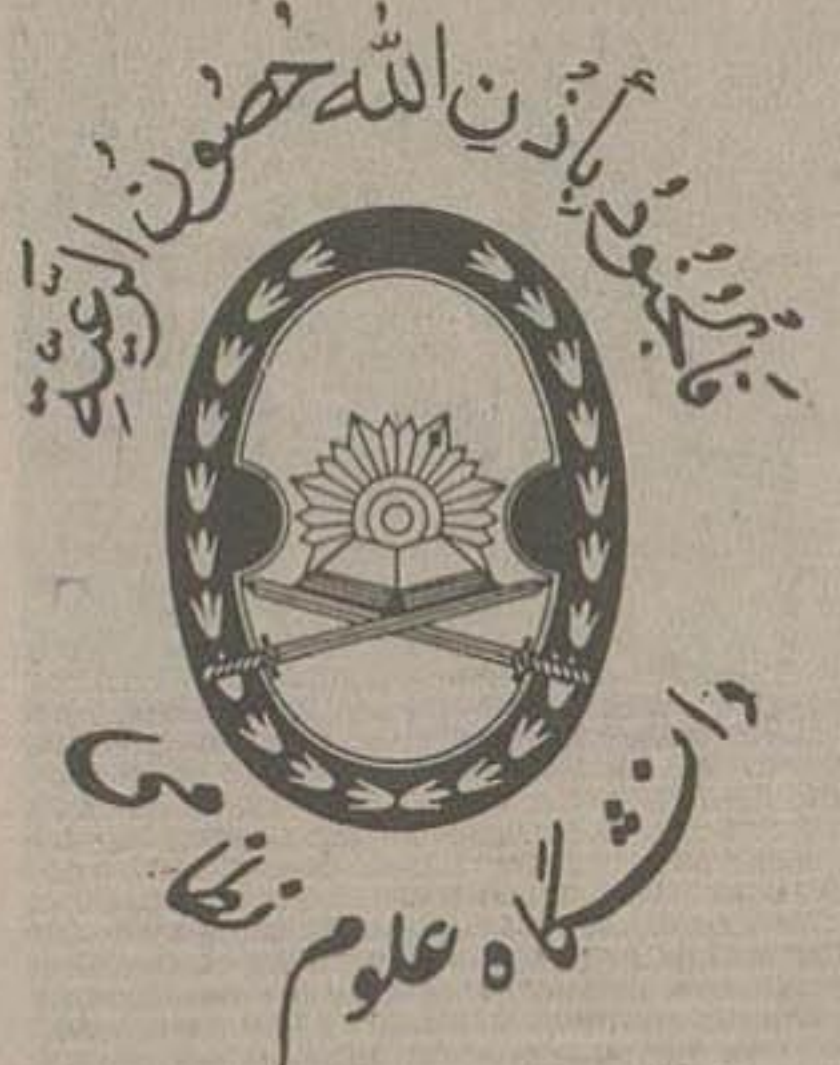 فَالْجُنُودُ بِأِذْنِ اللّٰه حُصُونُ الرَّعِیَّةِ
دانشگاه علوم نظامی